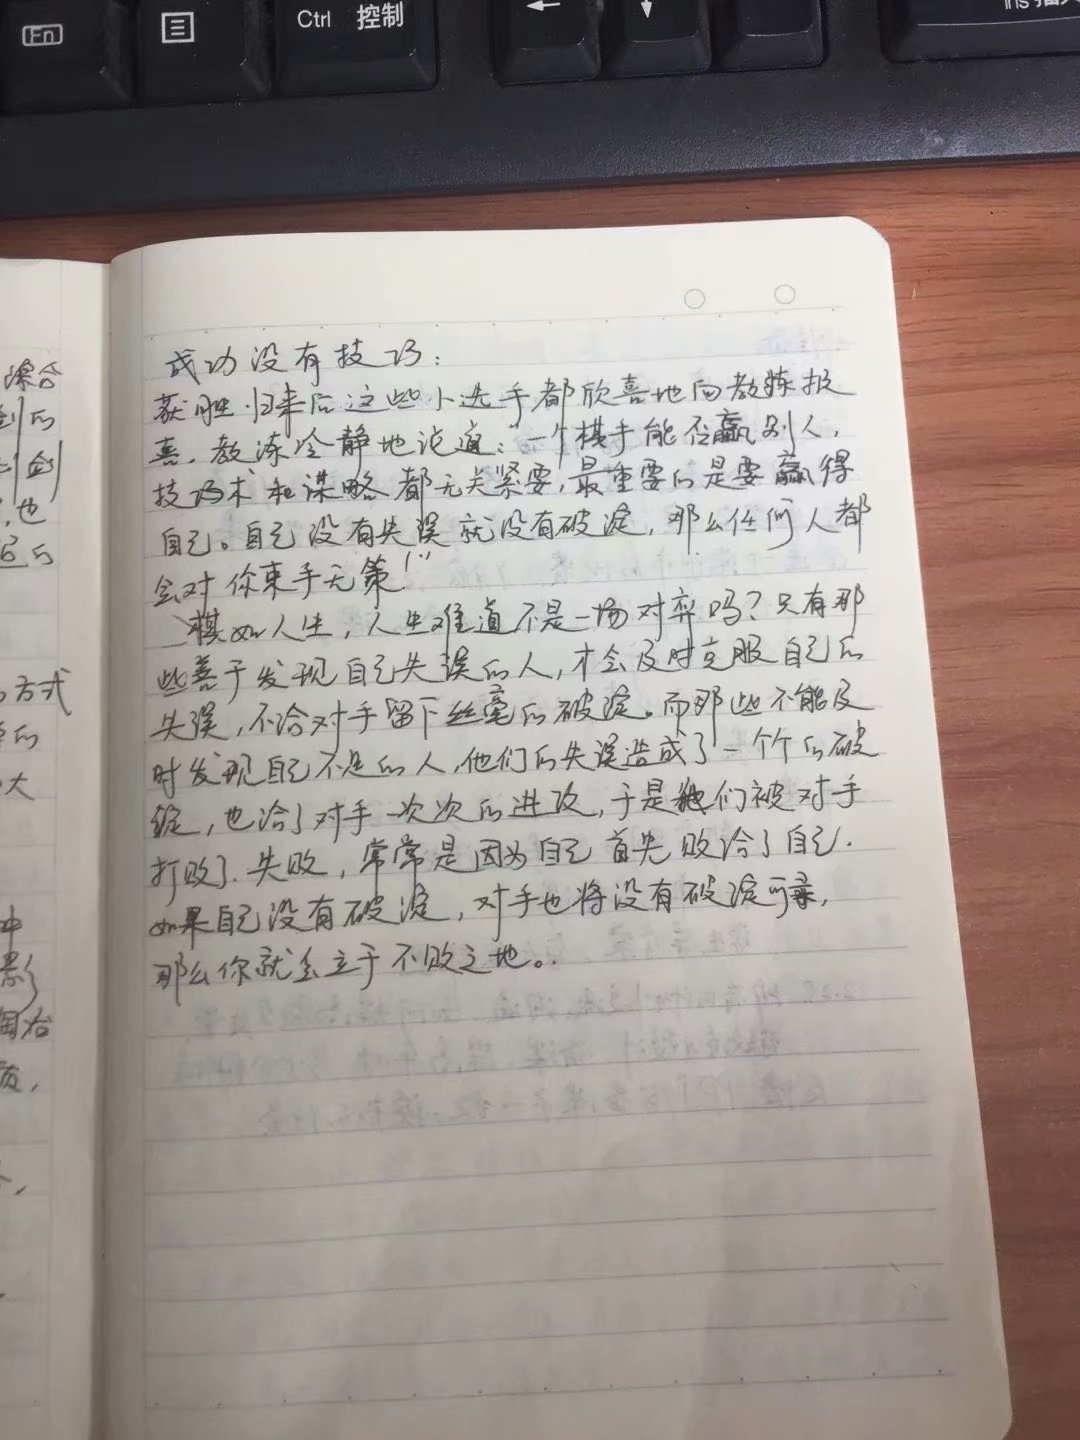 Fn
Ctrl 控制
←
↓
Ins
成功没有技巧：
获胜归来后这些小选手都欣喜地向教练报
喜。教练冷静地说道：“一个棋手能否赢别人，
技巧术和谋略都无关紧要，最重要的是要赢得
自己。自己没有失误就没有破淀，那么任何人都
会对你束手无策！”
棋如人生，人生难道不是一场对弈吗？只有那
些善于发现自己失误的人，才会及时克服自己的
失误，不给对手留下丝毫的破淀。而那些不能及
时发现自己不足的人，他们的失误造成了一个个的破
绽，也给了对手一次次的进攻，于是他们被对手
打败了。失败，常常是因为自己首先败给了自己.
如果自己没有破淀，对手也将没有破淀可寻，
那么你就会立于不败之地。
综合
剑的
剑
，也
的
方式
的
大
冲
影
陶冶
，